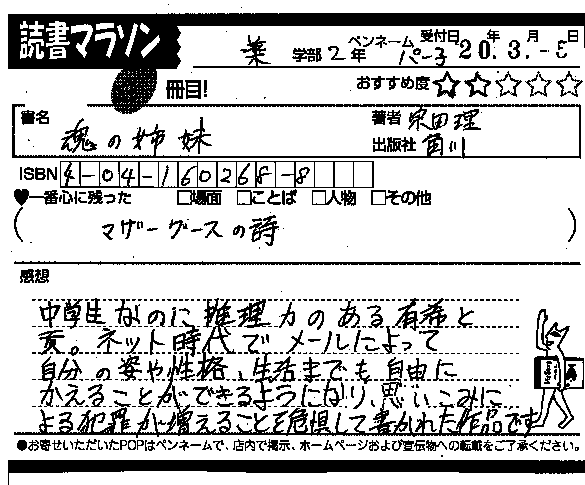 読書マラソン
薬 学部 2 年 ペンネーム パー子 受付日 20. 年 3. 月 -5 日
冊目!
おすすめ度 ☆☆☆☆☆
書名 魂の姉妹
著者 宗田理
出版社 角川
ISBN 4-04-160268-8
♥一番心に残った □場面 □ことば □人物 □その他
( マザーグースの詩 )
感想
中学生なのに推理力のある有希と
貢。ネット時代でメールによって
自分の姿や性格、生活までも自由に
かえることができるようになり、思いこみに
よる犯罪が増えることを危惧して書かれた作品です
●お寄せいただいたPOPはペンネームで、店内で掲示、ホームページおよび宣伝物への転載をご了承ください。